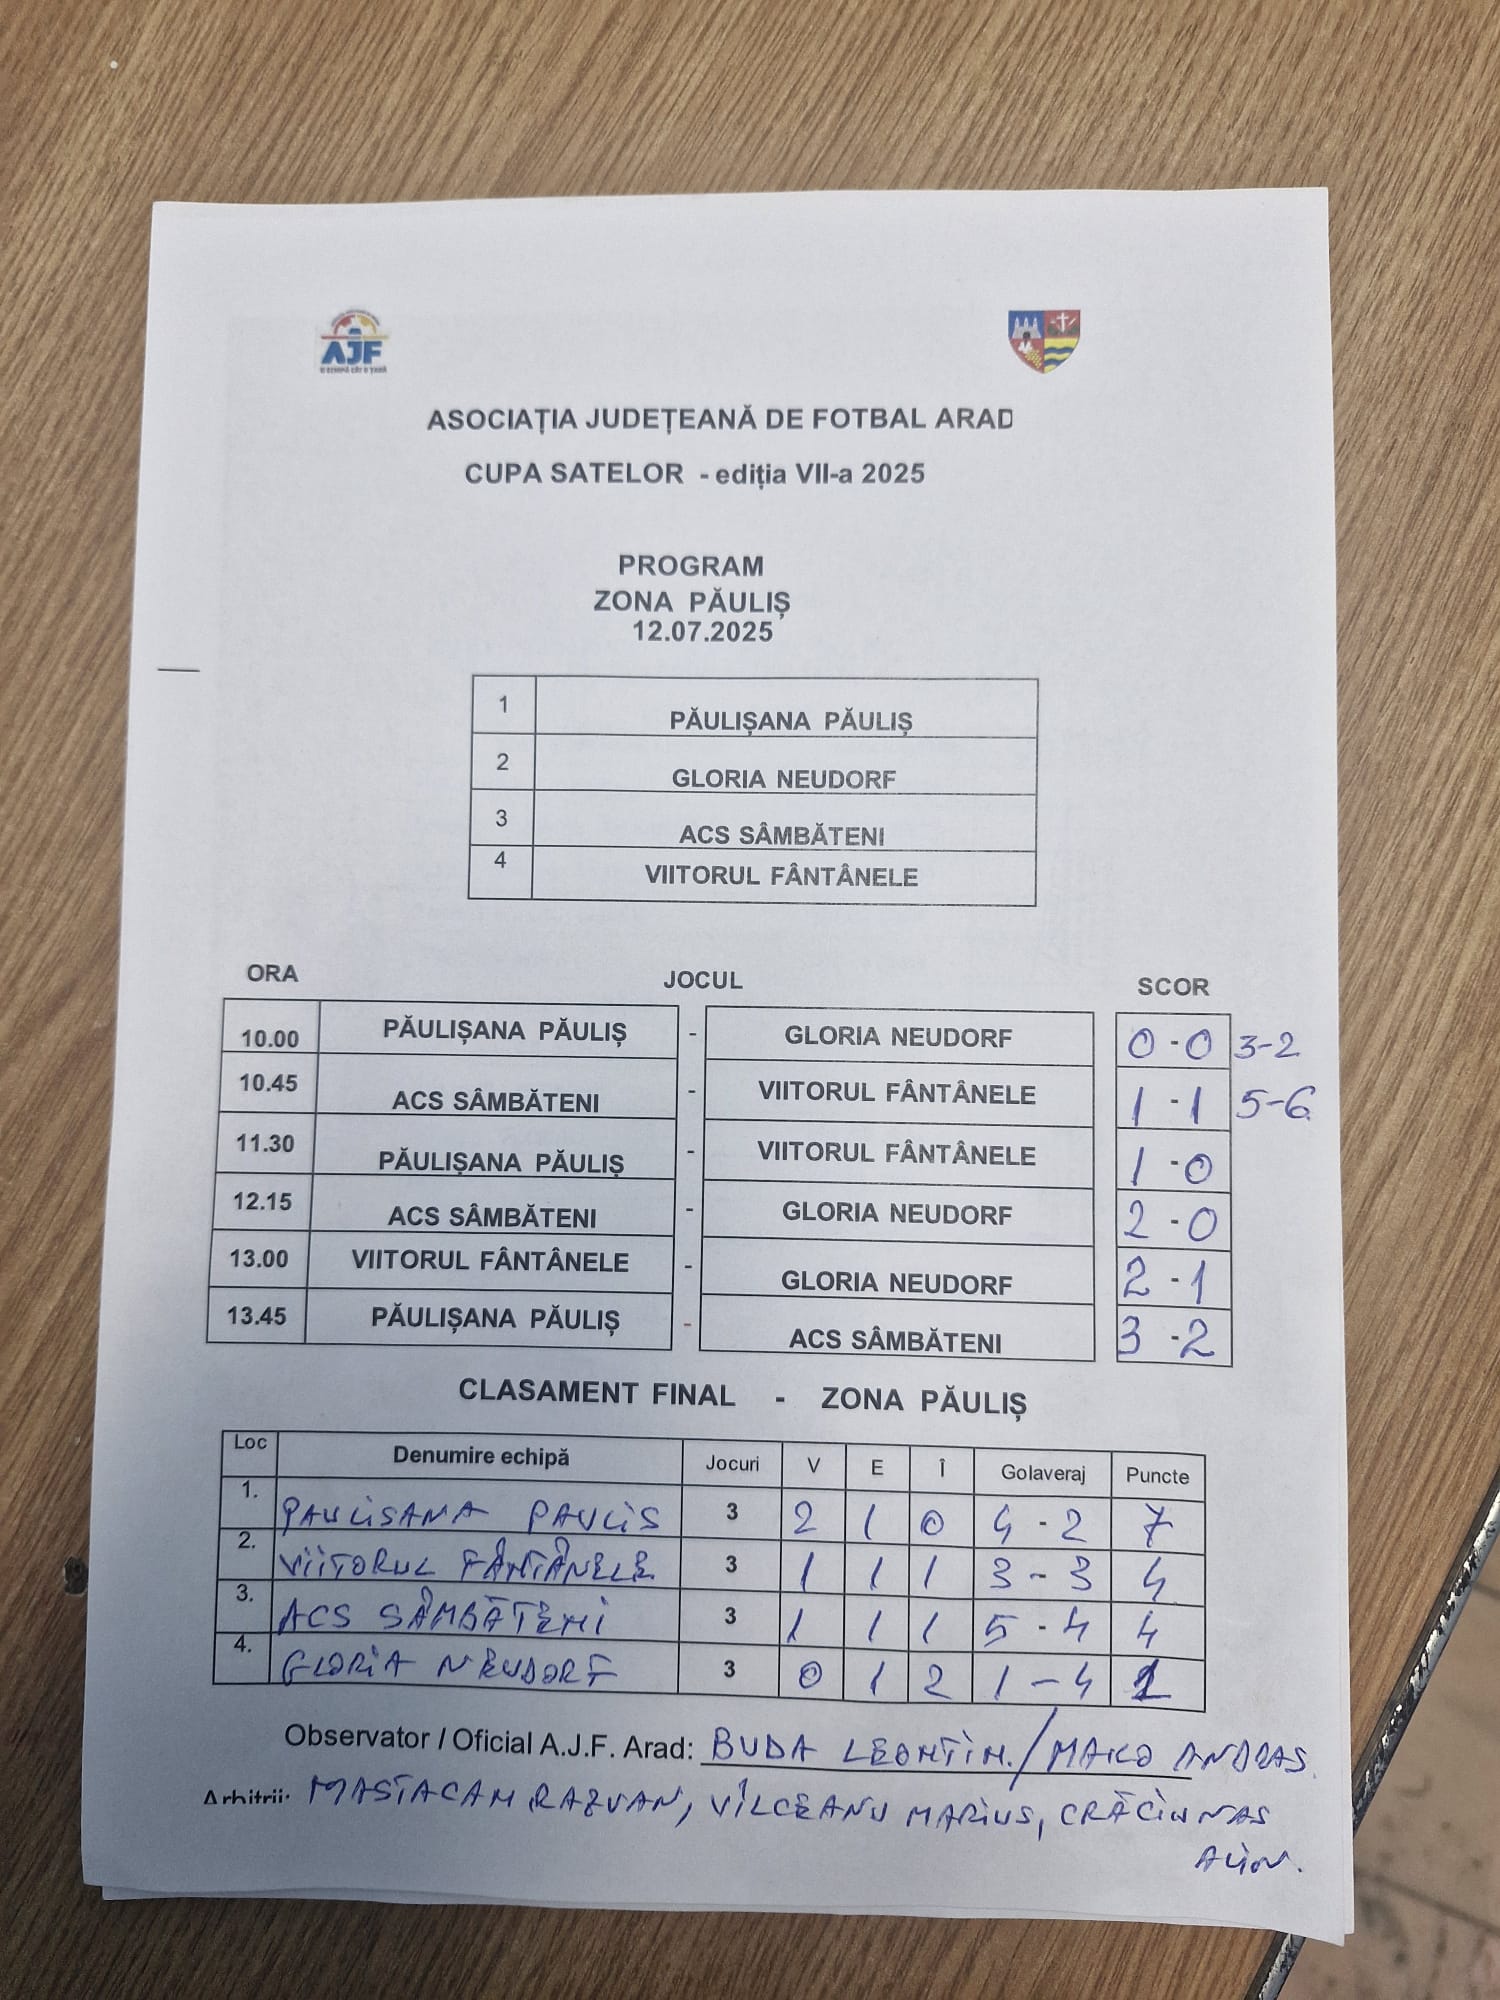 AJF
ASOCIAȚIA JUDEȚEANĂ DE FOTBAL ARAD
CUPA SATELOR - ediția VII-a 2025
PROGRAM
ZONA PĂULIȘ
12.07.2025
1 PĂULIȘANA PĂULIȘ
2 GLORIA NEUDORF
3 ACS SÂMBĂTENI
4 VIITORUL FÂNTÂNELE
ORA JOCUL SCOR
10.00 PĂULIȘANA PĂULIȘ - GLORIA NEUDORF 0 - 0 3-2
10.45 ACS SÂMBĂTENI - VIITORUL FÂNTÂNELE 1 - 1 5-6
11.30 PĂULIȘANA PĂULIȘ - VIITORUL FÂNTÂNELE 1 - 0
12.15 ACS SÂMBĂTENI - GLORIA NEUDORF 2 - 0
13.00 VIITORUL FÂNTÂNELE - GLORIA NEUDORF 2 - 1
13.45 PĂULIȘANA PĂULIȘ - ACS SÂMBĂTENI 3 - 2
CLASAMENT FINAL - ZONA PĂULIȘ
Loc Denumire echipă Jocuri V E Î Golaveraj Puncte
1. PAULISANA PAULIS 3 2 1 0 4 - 2 7
2. VIITORUL FÂNTÂNELE 3 1 1 1 3 - 3 4
3. ACS SÂMBĂTENI 3 1 1 1 5 - 4 4
4. GLORIA NEUDORF 3 0 1 2 1 - 4 1
Observator / Oficial A.J.F. Arad: BUDA LEONTIN. / MAKO ANDRAS.
Arbitrii: MASTACAN RAZVAN, VÎLCEANU MARIUS, CRĂCIUNAS
ALIN.